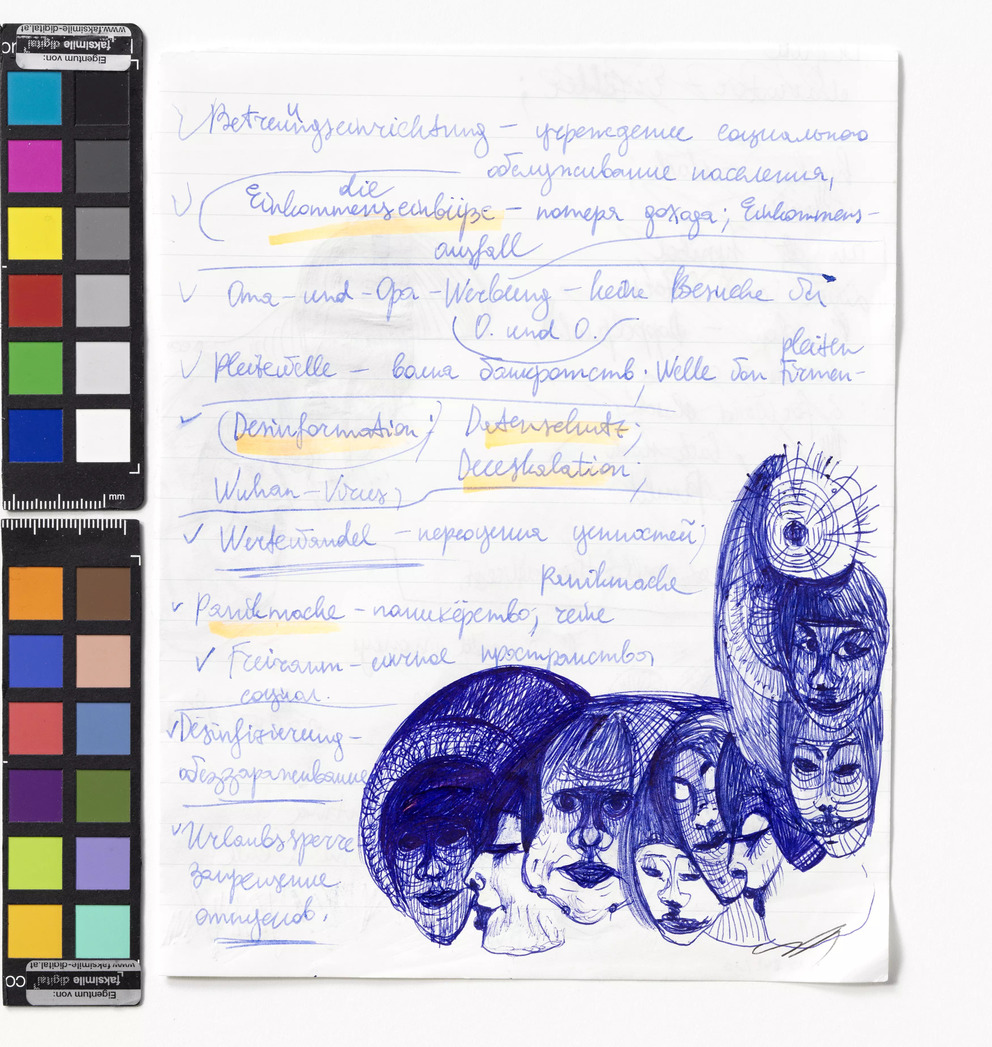 Betreungseinrichtung – учреждение социального
обслуживание населения,
die
Einkommenseinbüße – потеря дохода; Einkommens-
ausfall
Oma-und-Opa-Werbung – keine Besuche bei
O. und O.
pleiten
Pleitewelle – волна банкротств; Welle von Firmen-
Desinformation; Datenschutz;
Deeskalation;
Wuhan-Virus;
Wertewandel – переоценка ценностей;
Panikmache
Panikmache – паникёрство; reine
Freiraum – личное пространство,
социал.
Desinfizierung –
обеззараживание
Urlaubssperre –
запрещение
отпусков.
Eigentum von:
faksimile digital
www.faksimile-digital.at
mm
Eigentum von:
faksimile digital
www.faksimile-digital.at